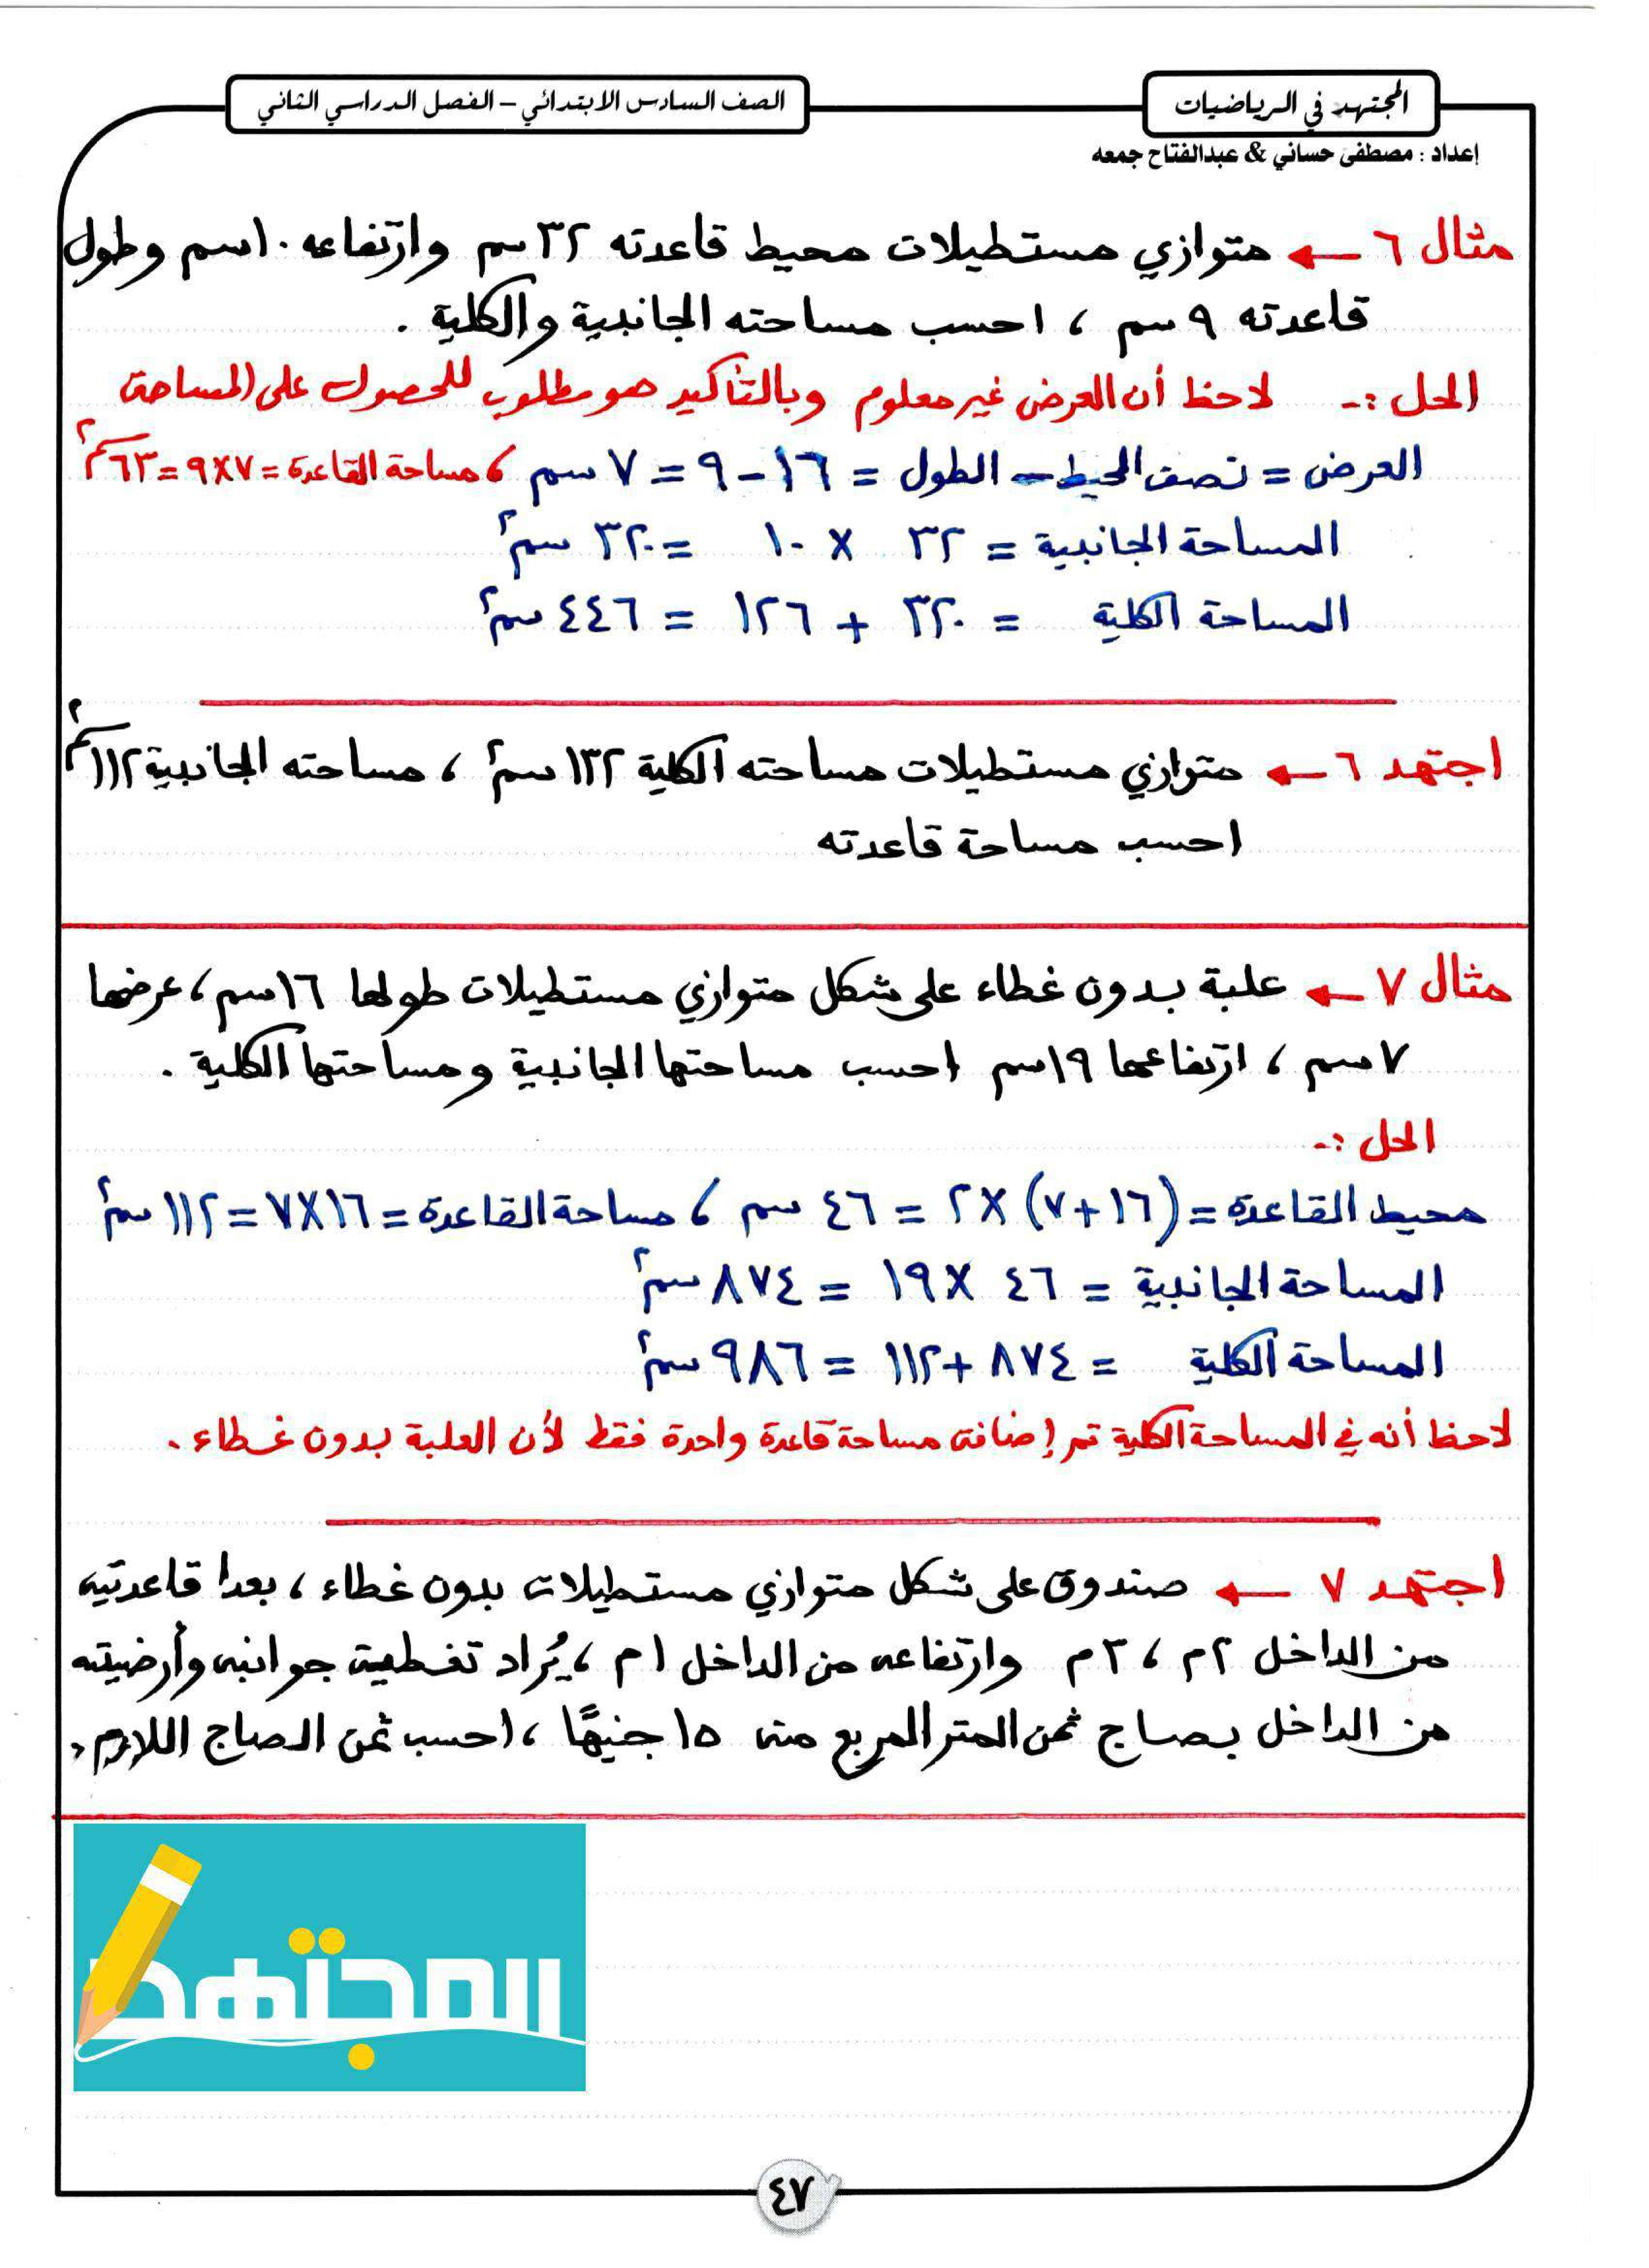 المجتهد في الرياضيات
الصف السادس الابتدائي – الفصل الدراسي الثاني
إعداد : مصطفى حساني & عبدالفتاح جمعه
مثال ٦ ← متوازي مستطيلات محيط قاعدته ٣٢ سم وارتفاعه ١٠سم وطول
قاعدته ٩ سم ، احسب مساحته الجانبية والكلية .
الحل :- لاحظ أن العرض غير معلوم وبالتأكيد هو مطلوب للحصول على المساحة
العرض = نصف المحيط - الطول = ١٦ - ٩ = ٧ سم ، مساحة القاعدة = ٧×٩ = ٦٣سم٢
المساحة الجانبية = ٣٢ × ١٠ = ٣٢٠ سم٢
المساحة الكلية = ٣٢٠ + ١٢٦ = ٤٤٦ سم٢
اجتهد ٦ ← متوازي مستطيلات مساحته الكلية ١٣٢ سم٢ ، مساحته الجانبية ١١٢سم٢
احسب مساحة قاعدته
مثال ٧ ← علبة بدون غطاء على شكل متوازي مستطيلات طولها ١٦سم ، عرضها
٧ سم ، ارتفاعها ١٩سم احسب مساحتها الجانبية ومساحتها الكلية .
الحل :-
محيط القاعدة = (١٦+٧) × ٢ = ٤٦ سم ، مساحة القاعدة = ١٦×٧ = ١١٢ سم٢
المساحة الجانبية = ٤٦ × ١٩ = ٨٧٤ سم٢
المساحة الكلية = ٨٧٤ + ١١٢ = ٩٨٦ سم٢
لاحظ أنه في المساحة الكلية تم إضافة مساحة قاعدة واحدة فقط لأن العلبة بدون غطاء .
اجتهد ٧ ← صندوق على شكل متوازي مستطيلات بدون غطاء ، بعدا قاعدتيه
من الداخل ٢م ، ٣م وارتفاعه من الداخل ١م ، يُراد تغطية جوانبه وأرضيته
من الداخل بصاج ثمن المتر المربع منه ١٥ جنيهًا ، احسب ثمن الصاج اللازم .
المجتهد
٤٧